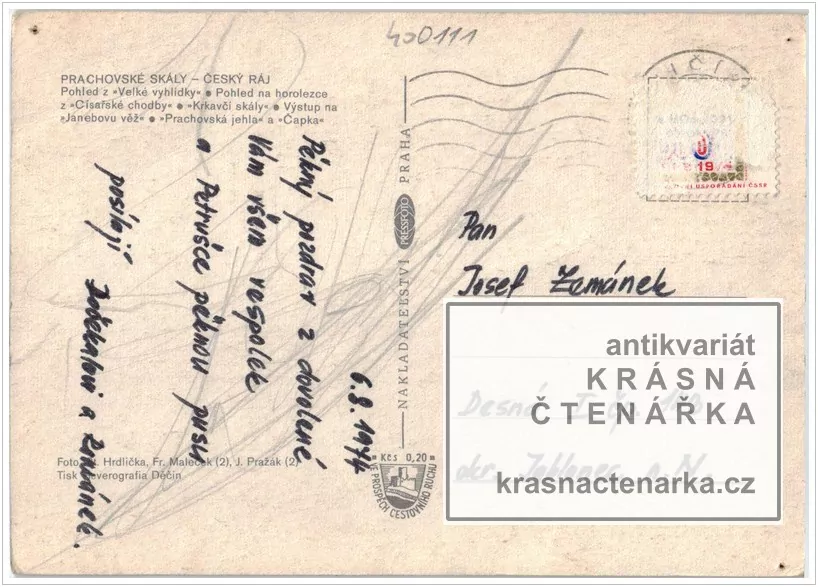 400111
PRACHOVSKÉ SKÁLY – ČESKÝ RÁJ
Pohled z »Velké vyhlídky« ● Pohled na horolezce
z »Císařské chodby« ● »Krkavčí skály« ● Výstup na
»Janebovu věž« ● »Prachovská jehla« a »Čapka«
Pěkný pozdrav z dovolené
Vám všem vespolek
a Petrušce pěknou pusu
posílají a Zemánek.
6.8.1974
Foto Hrdlička, Fr. Maleček (2), J. Pražák (2)
Tisk Severografia Děčín
NAKLADATELSTVÍ PRESSFOTO PRAHA
Kčs 0,20
VE PROSPĚCH CESTOVNÍHO RUCHU
JIČÍN
USPOŘÁDÁNÍ ČSSR
Pan
Josef Zemánek
Desná I. čp.
okr. Jablonec n. N.
antikvariát
KRÁSNÁ
ČTENÁŘKA
krasnactenarka.cz